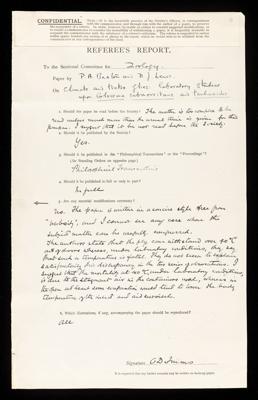 CONFIDENTIAL
REFEREE'S REPORT.
To the Sectional Committee for Zoology.
Paper by P. A. Buxton and D. J. Lewis
On Climate and Tsetse Flies: Laboratory Studies
upon Glossina submorsitans and tachinoides
1. Should the paper be read before the Society? The matter is too complex to be
read unless much more than the usual time is given for this
purpose. I suggest that it be not read before the Society.
2. Should it be published by the Society?
Yes.
3. Should it be published in the "Philosophical Transactions" or the "Proceedings"?
(See Standing Orders on opposite page)
Philosophical Transactions
4. Should it be published in full or only in part?
In full
5. Are any material modifications necessary?
No. The paper is written in a concise style free from
"verbosity", and I cannot see any case where the
subject matter can be usefully compressed.
The authors state that the fly can withstand over 40°C
out of doors whereas, under laboratory conditions, they say
that such a temperature is fatal. They do not seem to explain
satisfactorily this discrepancy in the two series of observations. I
suggest that the mortality at 40°C, under laboratory conditions,
is due to the stagnant air in the containers used, whereas in
the open at least some evaporation would tend to lower the body
temperature of the insect and aid survival.
6. Which illustrations, if any, accompanying the paper should be reproduced?
All
Signature A D Imms